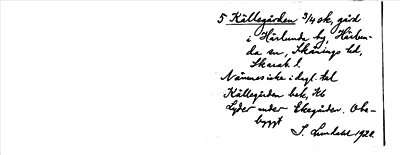 5 Källegården 3/4 ok, gård
i Härlunda by, Härlun-
da sn, Skånings hd,
Skarab. l.
Nämnes icke i dagl. tal
Källegården bak, Kb
Lyder under Ekegården. Obe-
byggt
S. Lundahl 1920